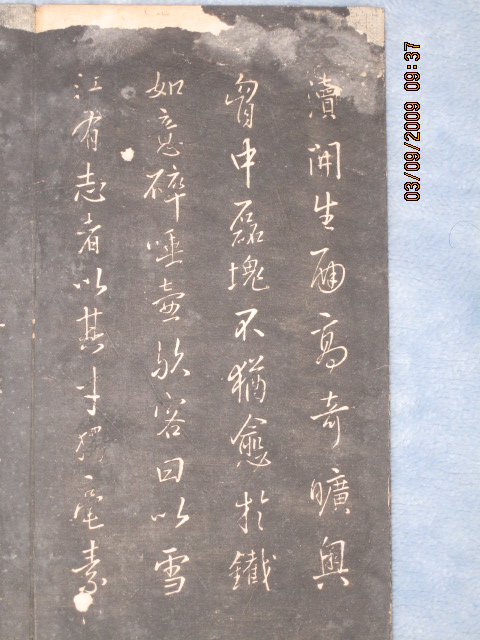 瀆開生面高奇曠奥
胷中磊塊不猶愈於鐵
如意碎唾壺欤客曰以雪
江有志者以其才獨毫素
03/09/2009 09:37